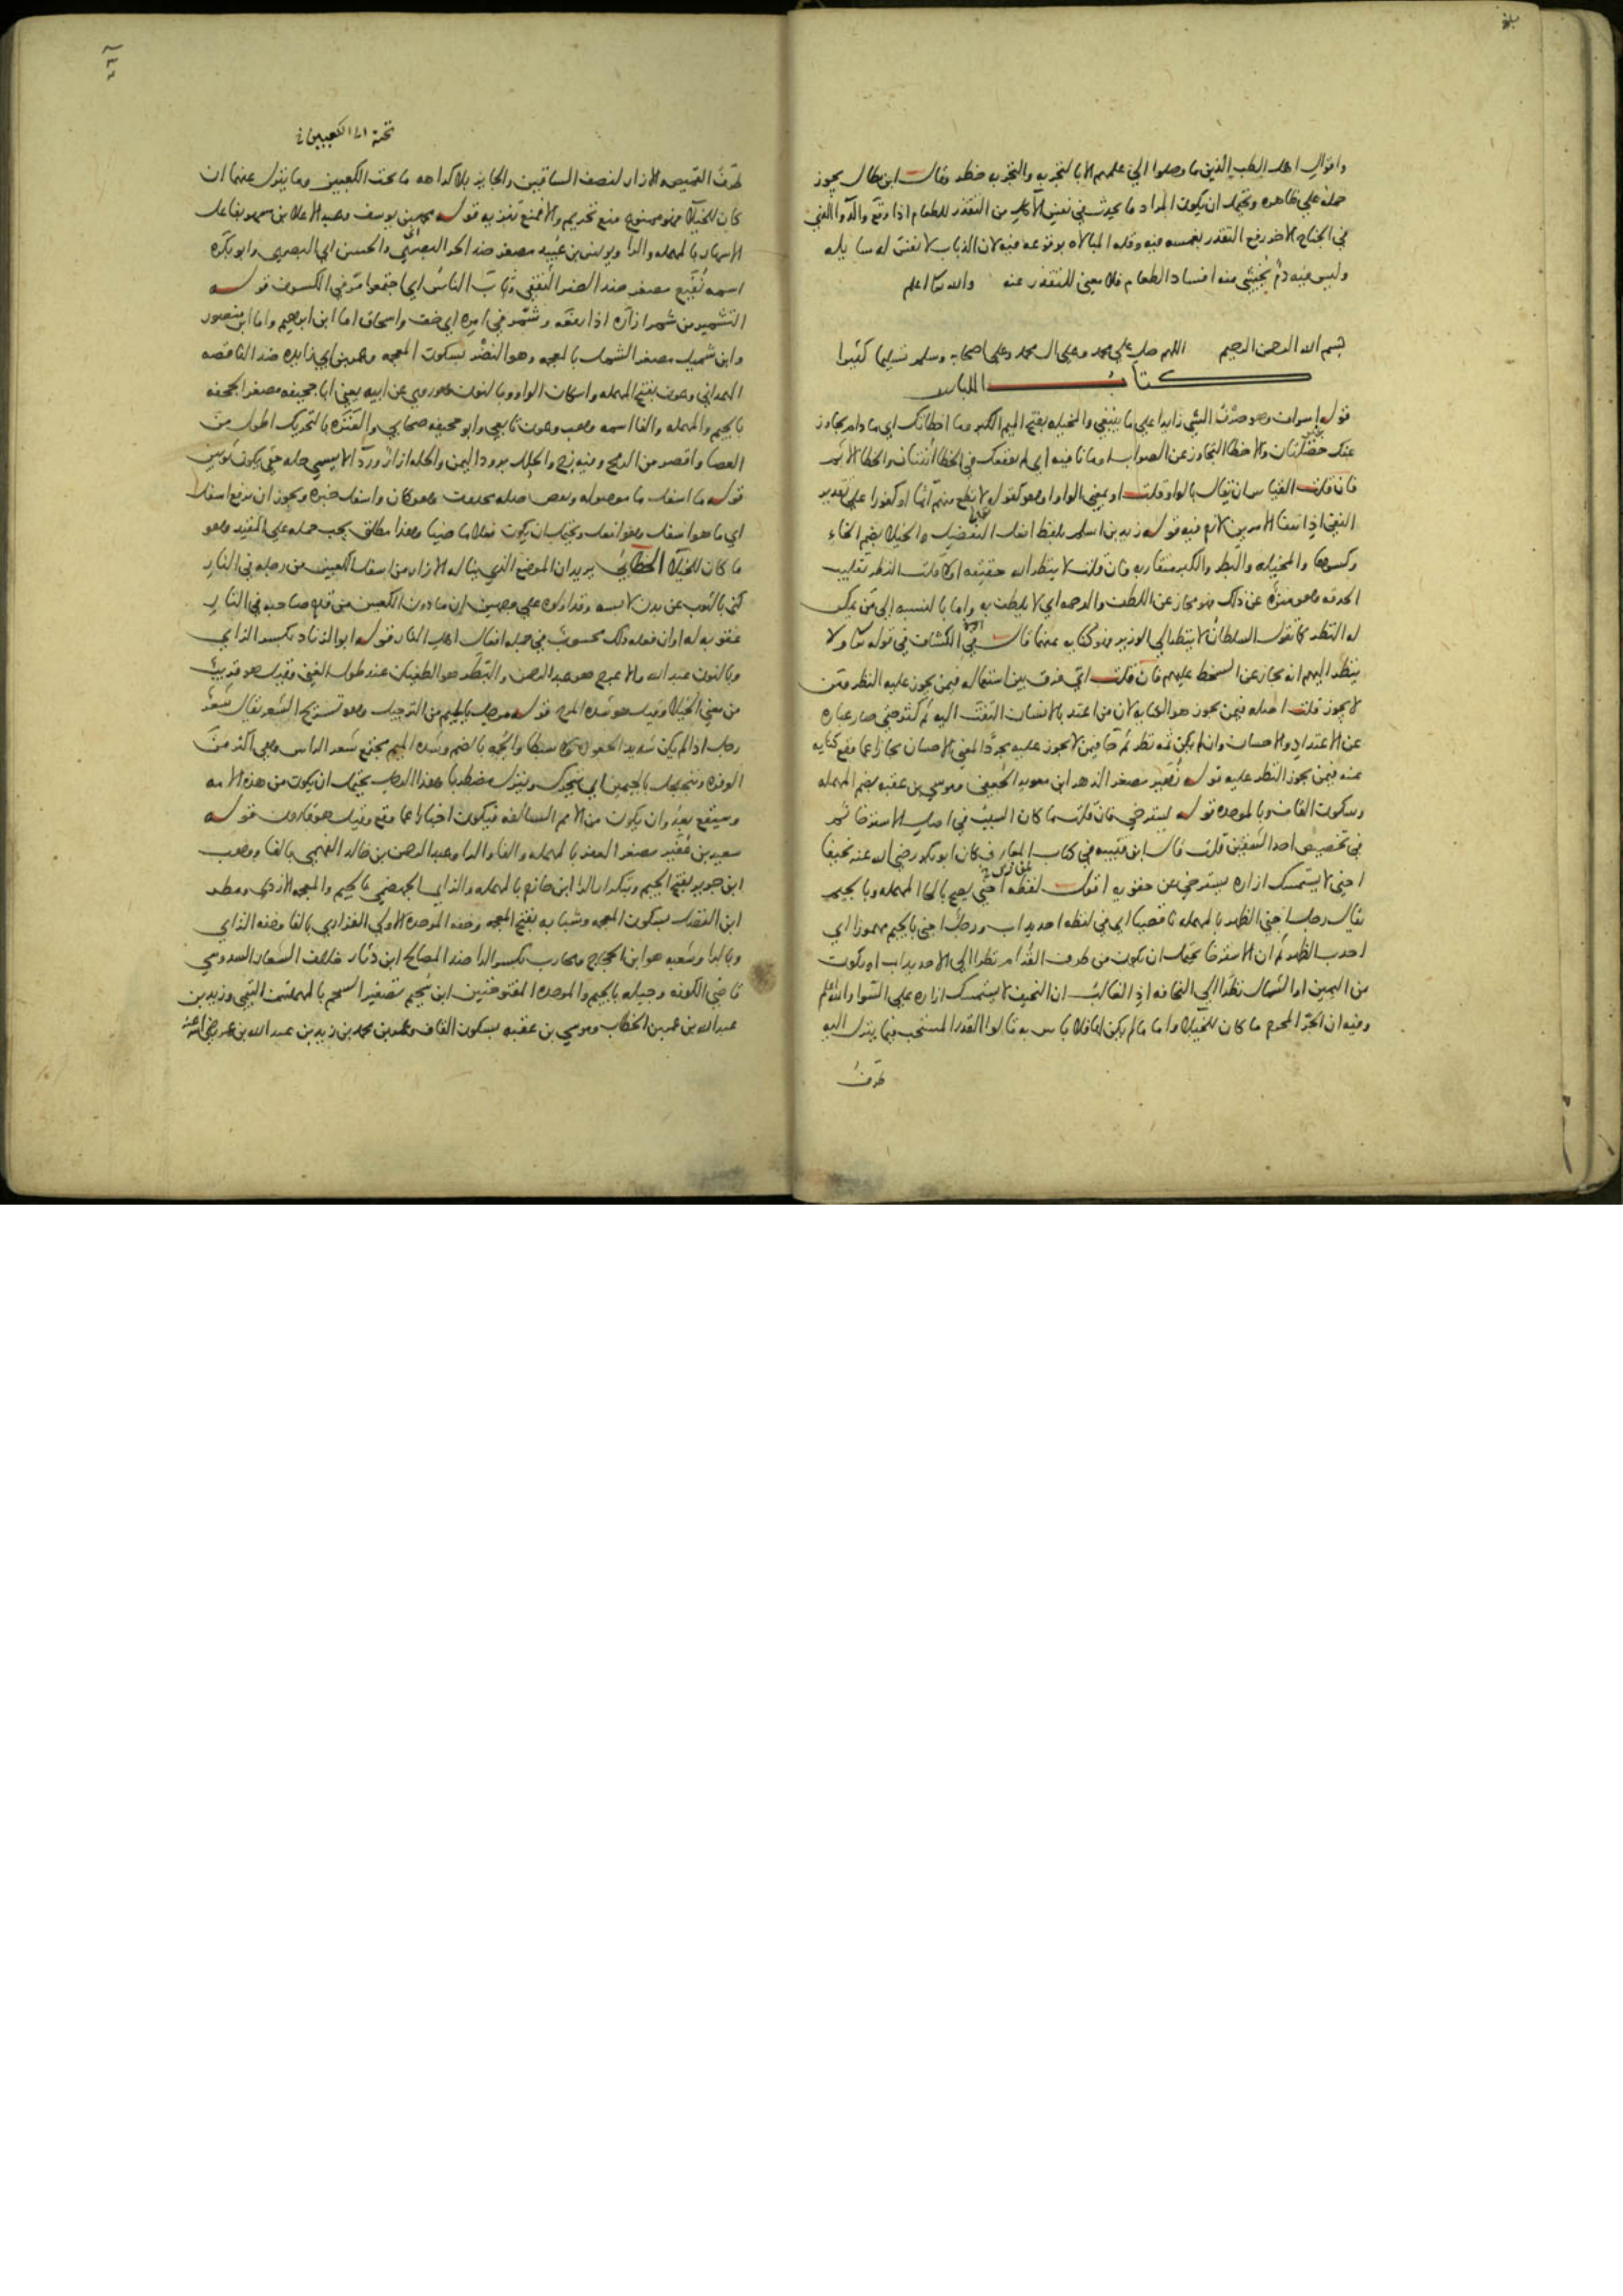 بلغ
واقوال اهل الطب الذين ما وصلوا الى علمهم الا بالتجربه والتجربه خطر وقال ابن بطال يجوز
حمله على ظاهره ويحتمل ان يكون المراد ما يحدث في نفس الاكل من التقذر للطعام اذا وقع والدوا الذي
في الجناح الاخر رفع التقذر بغمسه فيه وقله المبالاه بوقوعه فيه لان الذباب لا نفس له سايله
وليس فيه دم يخشى منه افساد الطعام فلا معنى للتقذر عنه والله تعا اعلم
بسم الله الرحمن الرحيم اللهم صل على محمد وعلى ال محمد وعلى اصحابه وسلم تسليما كثيرا
كتاب اللباس
قوله اسراف وهو صرف الشي زايدا على ما ينبغي والمخيله بفتح الميم الكبر وما اخطاتك اي ما دام تجاوز
عنك خصلتان والاخطا التجاوز عن الصواب او ما نافيه اي لم يوقعك في الخطا اثنتان والخطا الاثم
فان قلت القياس ان يقال بالواو قلت او بمعنى الواو او هو كقوله لا تطع منهم آثما او كفورا على تقدير
النفي اذ انتفا الامرين لازم فيه قوله زيد بن اسلم بلفظ افعل التفضيل والخيلا بضم الخاء
وكسرها والمخيله والبطر والكبر متقاربه فان قلت لا ينظر الله حقيقه ام لا قلت النظر تقليب
الحدقه وهو منزه عن ذلك فهو مجاز عن اللطف والرحمه اي لا يلطف به واما بالنسبه الى من يمكن
له النظر كما تقول السلطان لا ينظر الى الوزير فهو كنايه عنها قال في الكشاف في قوله تعا ولا
ينظر اليهم انه مجاز عن السخط عليهم فان قلت اي فرق بين استعماله فيمن يجوز عليه النظر ومن
لا يجوز قلت اصله فيمن يجوز هو الكنايه لان من اعتد بالانسان التفت اليه ثم كثر حتى صار عباره
عن الاعتداد والاحسان وان لم يكن ثمه نظر ثم جا فيمن لا يجوز عليه مجردا لمعنى الاحسان مجازا عما وقع كنايه
عنه فيمن يجوز النظر عليه قوله زهير مصغر الزهر ابن معويه الجعفي وموسى بن عقبه بضم المهمله
وسكون القاف وبالموحده قوله يسترخي فان قلت ما كان السبب في اصل الاسترخا ثم
في تخصيص احد الشقين قلت قال ابن قتيبه في كتاب المعارف كان ابو بكر رضي الله عنه نحيفا
احنى لا يستمسك ازاره يسترخي عن حقويه اقول لفظه احنى يصح بالحا المهمله وبالجيم
يقال رجل احنى الظهر بالمهمله ناقصيا اي في لفظه احديداب ورجل اجنى بالجيم مهموزا اي
احدب الظهر ثم ان الاسترخا يحتمل ان يكون من طرف القدام نظرا الى الاحديداب او يكون
من اليمين او الشمال نظرا الى النحافه اذ الغالب ان النحيف لا يستمسك ازاره على السوا والله اعلم
وفيه ان الجر المحرم ما كان للخيلا واما ما لم يكن لها فلا باس به قالوا القدر المستحب فيما ينزل اليه
طرف
تحته الى الكعبين
طرف القميص والازار لنصف الساقين والجايز بلا كراهه ما تحت الكعبين وما ينزل عنهما ان
كان للخيلا فهو ممنوع منع تحريم والا فمنع تنزيه قوله محمد بن يوسف وعبد الاعلى بن مسهر بفاعل
الاسهار بالمهمله والرا ويونس بن عبيد مصغر ضد الحر البصري والحسن اي البصري وابو بكره
اسمه نفيع مصغر ضد الضر الثقفي وثاب الناس اي اجتمعوا مر في الكسوف قوله
التشمير من شمر ازاره اذا رفعه وشمر في امره اي خف واسحاق اما ابن ابراهيم واما ابن منصور
وابن شميل مصغر الشمل بالمعجمه وهو النضر بسكون المعجمه وعمر بن ابي زايده ضد الناقصه
الهمداني وعون بفتح المهمله واسكان الواو وبالنون هو يروي عن ابيه يعني ابا جحيفه مصغر الجحفه
بالجيم والمهمله والفا اسمه وهب وعون تابعي وابو جحيفه صحابي والعنزه بالتحريك اطول من
العصا واقصر من الرمح وفيه زج والحلل برود اليمن والحله ازار وردا لا يسمى حله حتى يكون ثوبين
قوله ما اسفل ما موصوله وبعض صلته محذوف وهو كان واسفل خبره ويجوز ان يرفع اسفل
اي ما هو اسفل وهو افعل ويحتمل ان يكون فعلا ماضيا وهذا مطلق يجب حمله على المقيد وهو
ما كان للخيلا الخطابي يريد ان الموضع الذي يناله الازار من اسفل الكعبين من رجله في النار
كنى بالثوب عن بدن لابسه وقد اولوه على وجهين ان ما دون الكعبين من قدم صاحبه في النار
عقوبه له او ان فعله ذلك محسوب في جمله افعال اهل النار قوله ابو الزناد بكسر الزاي
وبالنون عبد الله والاعرج هو عبد الرحمن والبطر هو الطغيان عند طول الغنى وقيل هو قريب
من معنى الخيلا وقيل هو شده المرح قوله مرجل بالجيم من الترجيل وهو تسريح الشعر يقال شعر
رجل اذا لم يكن شديد الجعوده ولا سبطا والجمه بالضم وشده الميم مجتمع شعر الراس وهي اكثر من
الوفره ويتجلجل بالجيمين اي يتحرك وينزل مضطربا وهذا الرجل يحتمل ان يكون من هذه الامه
وسيقع بعد وان يكون من الامم السالفه فيكون اخبارا عما وقع وقيل هو قارون قوله
سعيد بن عفير مصغر العفر بالمهمله والفا والرا وعبد الرحمن بن خالد الفهمي بالفا ووهب
ابن جرير بفتح الجيم وبتكرار الرا ابن حازم بالمهمله والزاي الجهضمي بالجيم والمعجمه الازدي ومطر
ابن الفضل بسكون المعجمه وشبابه بفتح المعجمه وخفه الموحده الاولى الفزاري بالفا وخفه الزاي
وبالرا وشعبه هو ابن الحجاج ومحارب بكسر الرا ضد المصالح ابن دثار خلاف الشعار السدوسي
قاضي الكوفه وجبله بالجيم والموحده المفتوحتين ابن سحيم تصغير السحم بالمهملتين التيمي وزيد بن
عبد الله بن عمر بن الخطاب وموسى بن عقبه بسكون القاف وعمر بن محمد بن زيد بن عبد الله بن عمر رضي الله عنه